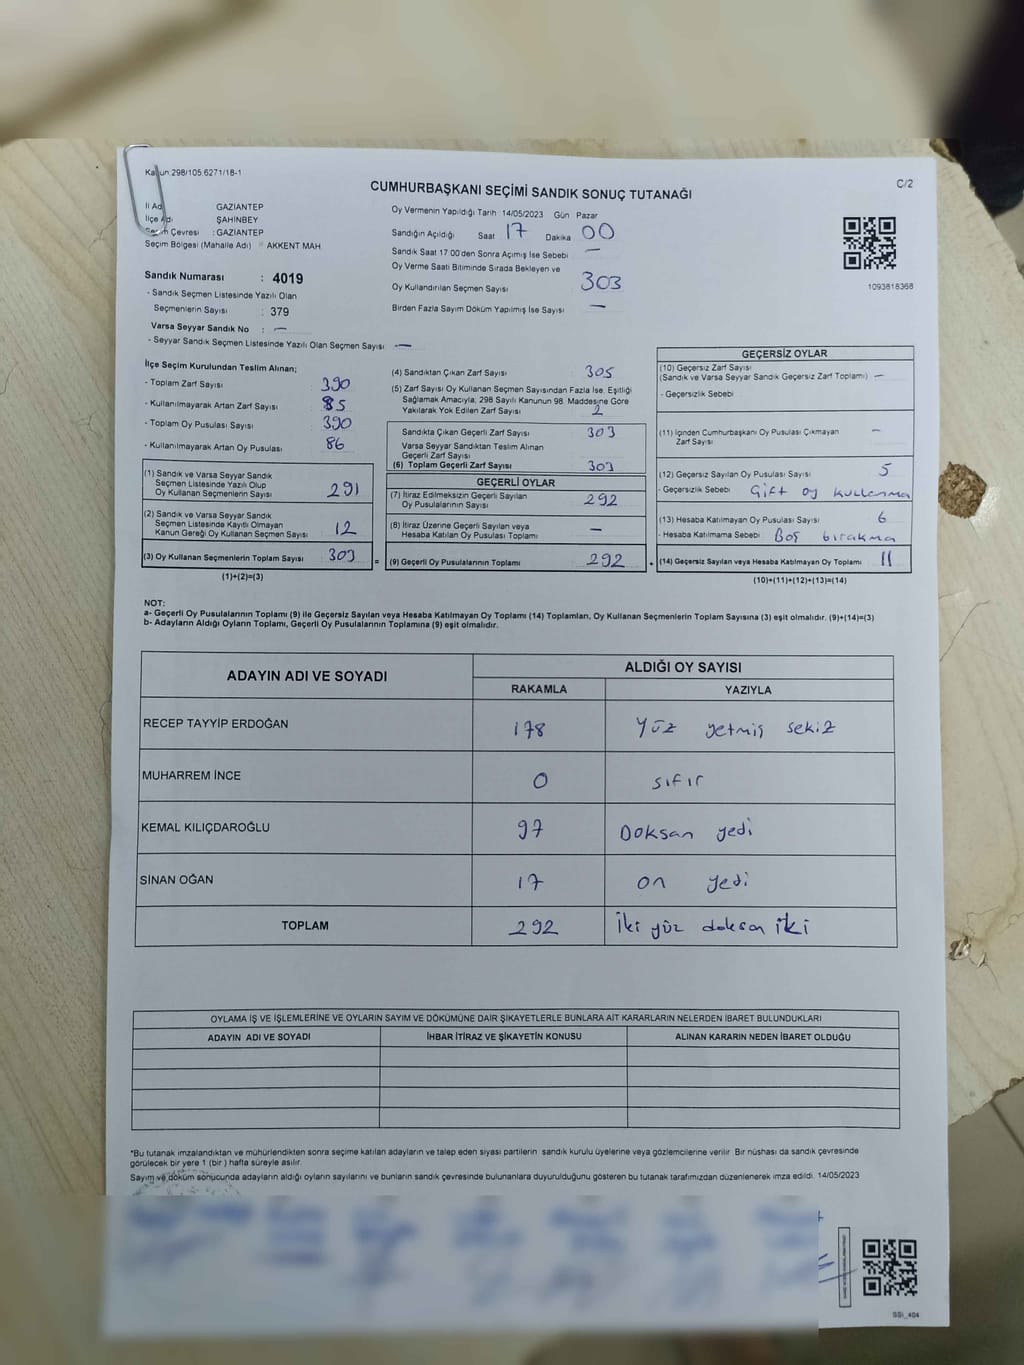 Kanun:298/105.6271/18-1
C/2
CUMHURBAŞKANI SEÇİMİ SANDIK SONUÇ TUTANAĞI
İl Adı GAZİANTEP
İlçe Adı ŞAHİNBEY
Seçim Çevresi : GAZİANTEP
Seçim Bölgesi (Mahalle Adı) AKKENT MAH.
Sandık Numarası : 4019
- Sandık Seçmen Listesinde Yazılı Olan
Seçmenlerin Sayısı : 379
Varsa Seyyar Sandık No : —
- Seyyar Sandık Seçmen Listesinde Yazılı Olan Seçmen Sayısı: —
Oy Vermenin Yapıldığı Tarih :14/05/2023 Gün Pazar
Sandığın Açıldığı Saat 17 Dakika 00
Sandık Saat 17:00'den Sonra Açımış İse Sebebi —
Oy Verme Saati Bitiminde Sırada Bekleyen ve
Oy Kullandırılan Seçmen Sayısı 303
Birden Fazla Sayım Döküm Yapılmış İse Sayısı —
1093818368
İlçe Seçim Kurulundan Teslim Alınan;
- Toplam Zarf Sayısı : 390
- Kullanılmayarak Artan Zarf Sayısı : 85
- Toplam Oy Pusulası Sayısı : 390
- Kullanılmayarak Artan Oy Pusulası : 86
(1) Sandık ve Varsa Seyyar Sandık
Seçmen Listesinde Yazılı Olup
Oy Kullanan Seçmenlerin Sayısı 291
(2) Sandık ve Varsa Seyyar Sandık
Seçmen Listesinde Kayıtlı Olmayan
Kanun Gereği Oy Kullanan Seçmen Sayısı 12
(3) Oy Kullanan Seçmenlerin Toplam Sayısı 303
(1)+(2)=(3)
(4) Sandıktan Çıkan Zarf Sayısı : 305
(5) Zarf Sayısı Oy Kullanan Seçmen Sayısından Fazla İse, Eşitliği
Sağlamak Amacıyla, 298 Sayılı Kanunun 98. Maddesine Göre
Yakılarak Yok Edilen Zarf Sayısı : 2
Sandıkta Çıkan Geçerli Zarf Sayısı : 303
Varsa Seyyar Sandıktan Teslim Alınan
Geçerli Zarf Sayısı
(6) Toplam Geçerli Zarf Sayısı : 303
GEÇERLİ OYLAR
(7) İtiraz Edilmeksizin Geçerli Sayılan
Oy Pusulalarının Sayısı : 292
(8) İtiraz Üzerine Geçerli Sayılan veya
Hesaba Katılan Oy Pusulası Toplamı : —
= (9) Geçerli Oy Pusulalarının Toplamı : 292 +
GEÇERSİZ OYLAR
(10) Geçersiz Zarf Sayısı
(Sandık ve Varsa Seyyar Sandık Geçersiz Zarf Toplamı) : —
- Geçersizlik Sebebi
(11) İçinden Cumhurbaşkanı Oy Pusulası Çıkmayan
Zarf Sayısı —
(12) Geçersiz Sayılan Oy Pusulası Sayısı : 5
- Geçersizlik Sebebi Çift oy kullanma
(13) Hesaba Katılmayan Oy Pusulası Sayısı : 6
- Hesaba Katılmama Sebebi Boş bırakma
(14) Geçersiz Sayılan veya Hesaba Katılmayan Oy Toplamı : 11
(10)+(11)+(12)+(13)=(14)
NOT:
a- Geçerli Oy Pusulalarının Toplamı (9) ile Geçersiz Sayılan veya Hesaba Katılmayan Oy Toplamı (14) Toplamları, Oy Kullanan Seçmenlerin Toplam Sayısına (3) eşit olmalıdır. (9)+(14)=(3)
b- Adayların Aldığı Oyların Toplamı, Geçerli Oy Pusulalarının Toplamına (9) eşit olmalıdır.
ADAYIN ADI VE SOYADI ALDIĞI OY SAYISI
RAKAMLA YAZIYLA
RECEP TAYYİP ERDOĞAN 178 Yüz yetmiş sekiz
MUHARREM İNCE 0 sıfır
KEMAL KILIÇDAROĞLU 97 Doksan yedi
SİNAN OĞAN 17 on yedi
TOPLAM 292 İki yüz doksan iki
OYLAMA İŞ VE İŞLEMLERİNE VE OYLARIN SAYIM VE DÖKÜMÜNE DAİR ŞİKAYETLERLE BUNLARA AİT KARARLARIN NELERDEN İBARET BULUNDUKLARI
ADAYIN ADI VE SOYADI İHBAR İTİRAZ VE ŞİKAYETİN KONUSU ALINAN KARARIN NEDEN İBARET OLDUĞU
*Bu tutanak imzalandıktan ve mühürlendikten sonra seçime katılan adayların ve talep eden siyasi partilerin sandık kurulu üyelerine veya gözlemcilerine verilir. Bir nüshası da sandık çevresinde
görülecek bir yere 1 (bir ) hafta süreyle asılır.
Sayım ve döküm sonucunda adayların aldığı oyların sayılarını ve bunların sandık çevresinde bulunanlara duyurulduğunu gösteren bu tutanak tarafımızdan düzenlenerek imza edildi. 14/05/2023
SSİ_404